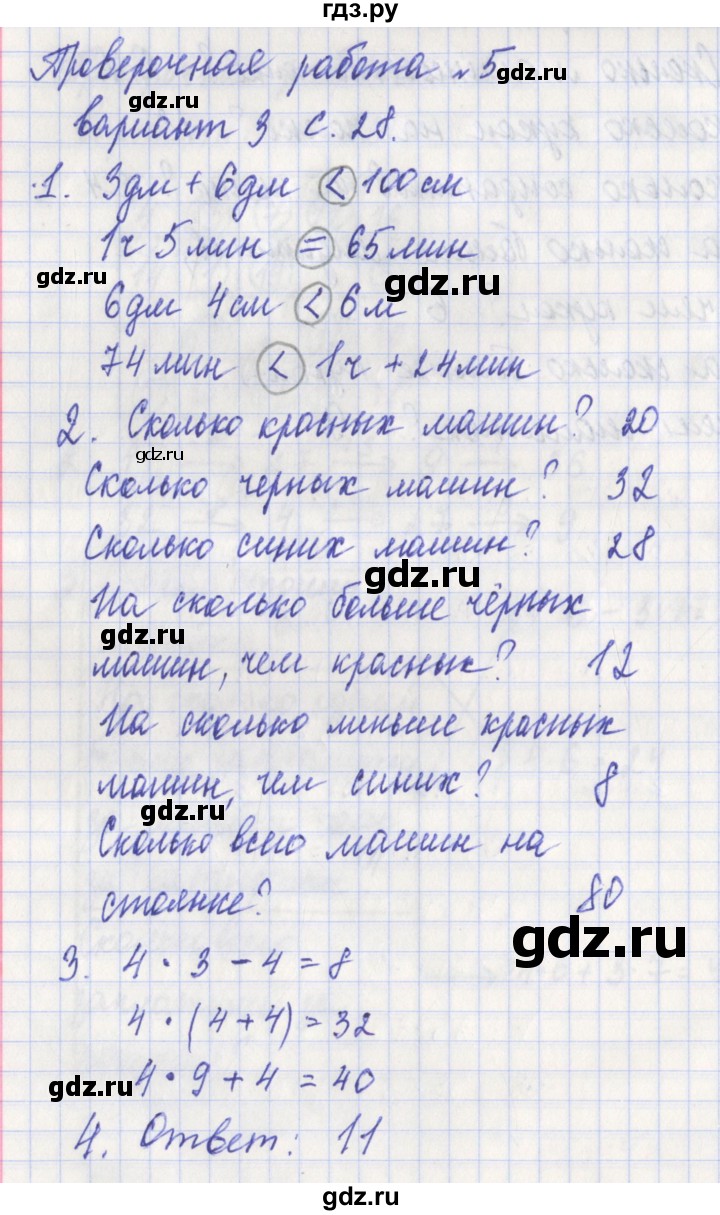 гдз.ру
Проверочная работа №5
gdz.ru
gdz.ru
вариант 3 с. 28.
1. 3дм + 6дм < 100см
1ч 5мин = 65мин
gdz.ru
gdz.ru
6дм 4см < 6м
74мин < 1ч + 24мин
2. Сколько красных машин? 20
gdz.ru
Сколько черных машин? 32
Сколько синих машин? 28
gdz.ru
На сколько больше чёрных
gdz.ru
машин, чем красных? 12
На сколько меньше красных
машин, чем синих? 8
gdz.ru
Сколько всего машин на
стоянке? 80
gdz.ru
3. 4 · 3 - 4 = 8
4 · (4 + 4) = 32
gdz.ru
4 · 9 + 4 = 40
4. Ответ: 11
gdz.ru